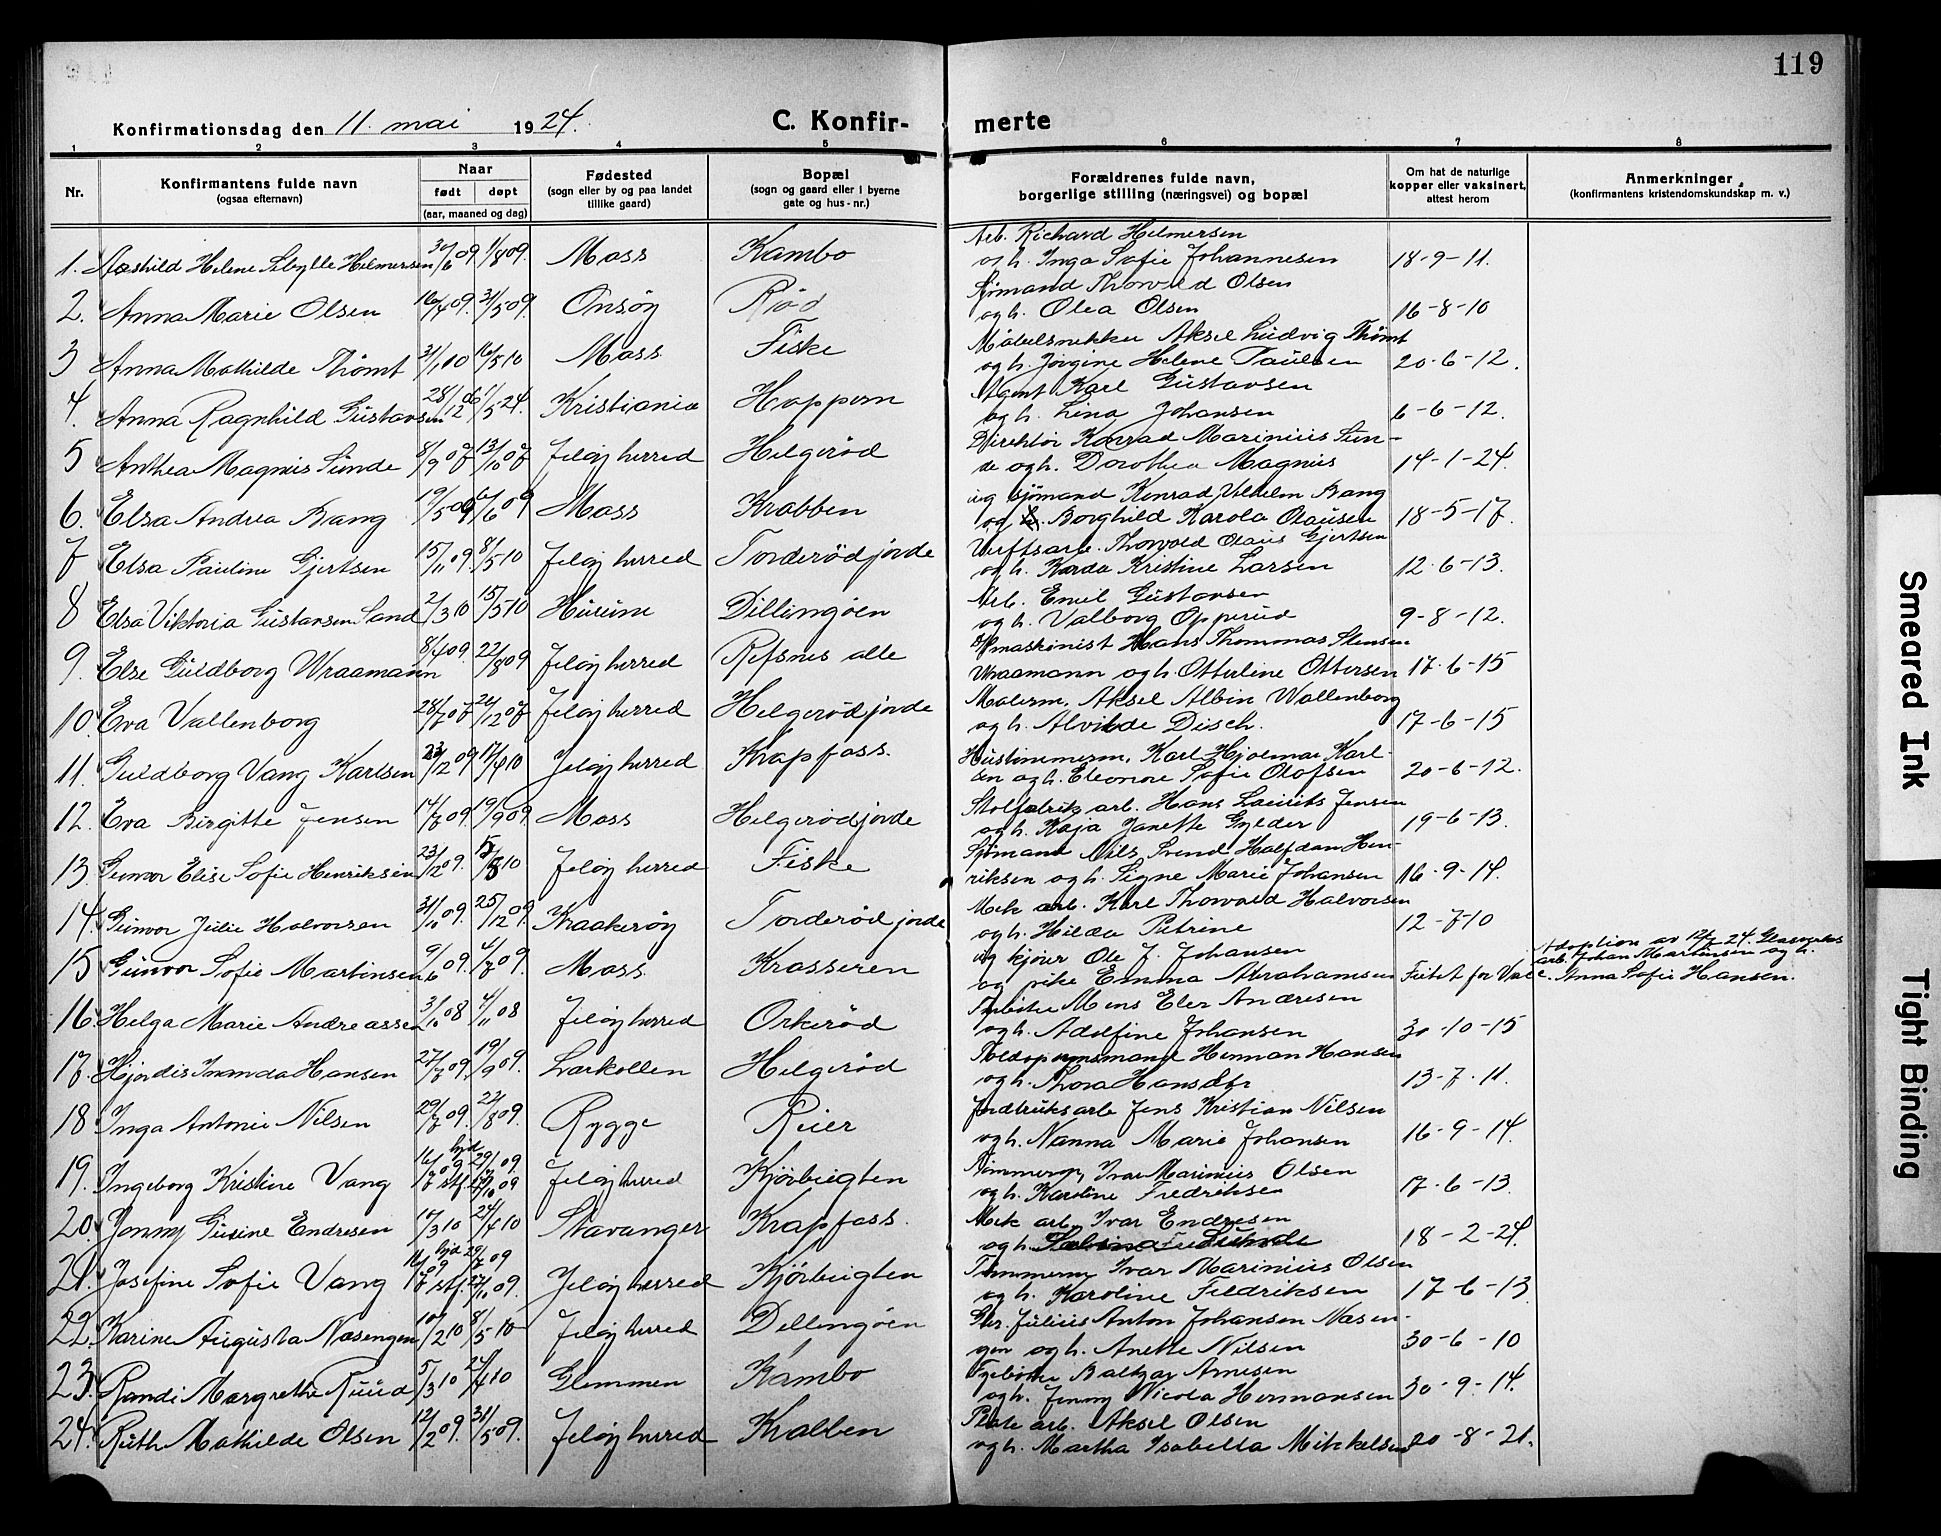 119
Konfirmationsdag den 11. mai 1924.
C. Konfirmerte
1 2 3 4 5 6 7 8
Nr.
Konfirmantens fulde navn
(ogsaa efternavn)
Naar
født døpt
(aar, maaned og dag)
Fødested
(sogn eller by og paa landet
tillike gaard)
Bopæl
(sogn og gaard eller i byerne
gate og hus-nr.)
Forældrenes fulde navn,
borgerlige stilling (næringsvei) og bopæl
Om hat de naturlige
kopper eller vaksinert,
attest herom
Anmerkninger
(konfirmantens kristendomskundskap m. v.)
Arb. Richard Helmersen
1. Aashild Helene Sibylle Helmersen 30/6 09 1/8 09. Moss Kambo og h. Inga Sofie Johannesen 18-9-11.
Sjømand Thorvald Olsen
2. Anna Marie Olsen 16/4 09. 31/5 09. Onsøy Rød og h. Olea Olsen 16-8-10
Møbelsnekker Aksel Ludvig Thømt
3 Anna Mathilde Thømt 31/1 10 16/5 10 Moss Fiske og h. Jørgine Helene Paulsen 20-6-12.
Agent Karl Gustavsen
4. Anna Ragnhild Gustavsen 28/12 06 1/5 24. Kristiania Hoppern og h. Lina Johansen 6-6-12.
Direktør Konrad Marinius Sun-
5 Anthea Magnus Sunde 8/9 07 13/10 07 Jeløy herred Helgerød de og h. Dorothea Magnus 14-1-24.
ug sjømand Konrad Vilhelm Bang
6. Elsa Andrea Bang 19/5 09 6/6 09 Moss Krabben og h. Borghild Karola Olausen 18-5-17.
Verftsarb. Thorvald Olaus Gjertsen
7 Elsa Pauline Gjertsen 15/11 09. 8/5 10 Jeløy herred Torderød jorde og h. Karda Kristine Larsen 12-6-13.
Arb. Emil Gustavsen
8 Elsa Viktoria Gustavsen Sand 2/3 10 15/5 10 Hurum Dillingøen og h. Valborg Opperud 9-8-12.
maskinist Hans Thommas Stensen
9. Else Guldborg Wraamann 8/4 09. 22/8 09 Jeløy herred Refsnes alle Wraamann og h. Otterline Ottersen 17-6-15
Malerm. Aksel Albin Wallenborg
10. Eva Vallenborg 28/7 07 26/12 07 Jeløy herred Helgerød jorde og h. Alvilde Disch. 17-6-15
Karl Hjalmar Karl-
11. Guldborg Vang Karlsen 23/12 09 17/4 10 Jeløy herred Krapfoss. sen og h. Eleonore Sofie Olofsen 20-6-12.
Stolfabrik arb. Hans Laurits Jensen
12. Eva Birgitte Jensen 14/7 09. 19/9 09. Moss Helgerødjorde og h. Kaja Janette Gylder 19-6-13.
Sjømand Nils Svend Halfdan Hen-
13. Gunvor Elise Sofie Henriksen 23/12 09. 15/8 10 Jeløy herred Fiske riksen og h. Signe Marie Johansen 16-9-14.
Mek arb. Karl Thorvald Halvorsen
14. Gunvor Julie Halvorsen 31/10 09. 25/12 09. Kraakerøy Torderød jorde og h. Hilda Petrine 12-7-10
ug kjører Ole J. Johansen Adoption av 12/2 24. Glasverks
arb. Johan Martinsen og h.
15 Gunvor Sofie Martinsen 9/6 09. 4/7 09. Moss Krosseren og pike Emma Abrahamsen Fritet for Vacc. Anna Sofie Hansen.
Fyrbøter Mons Eler Andresen
16. Helga Marie Andreassen 3/10 08 4/11 08 Jeløy herred Orkerød og h. Adolfine Johansen 30-10-15
Toldopsynsmand Herman Hansen
17. Hjørdis Imanda Hansen 27/7 09. 19/9 09. Larkollen Helgerød og h. Thora Hansdtr 13-7-11.
Indtruksarb Jens Kristian Nilsen
18 Inga Antonie Nilsen 29/7 09. 22/8 09. Rygge Reier og h. Nanna Marie Johansen 16-9-14.
Tømmerm, Ivar Marinius Olsen
19. Ingeborg Kristine Vang 16/7 09 hjd 29/7 09. stf. 27/10 09 Jeløy herred Kjørbugten og h. Karoline Fredriksen 17-6-13.
Mek arb. Ivar Endresen
20. Jonny Gusine Endresen 10/3 10 24/4 10 Stavanger Krapfoss. og h. 18-2-24.
Tømmerm Ivar Marinius Olsen
21. Josefine Sofie Vang 16/7 09 hjd 29/7 09 stf. 27/10 09. Jeløy herred Kjørbugten og h. Karoline Fredriksen 17-6-13
Julius Anton Johansen Næsen-
22. Karine Augusta Næsengen 10/2 10 8/5 10 Jeløy herred Dillingøen gen og h. Anette Nilsen 30-6-10
Fyrbøter Baltzar Arnesen
23. Randi Margrethe Ruud 5/3 10 24/4 10 Glemmen Kambo og h. Jenny Nicola Hermansen 30-9-14.
Plate arb. Aksel Olsen
24. Ruth Mathilde Olsen 12/2 09. 31/5 09. Jeløy herred Krabben og h. Martha Isabella Mikkelsen 20-8-21.
Smeared Ink
Tight Binding